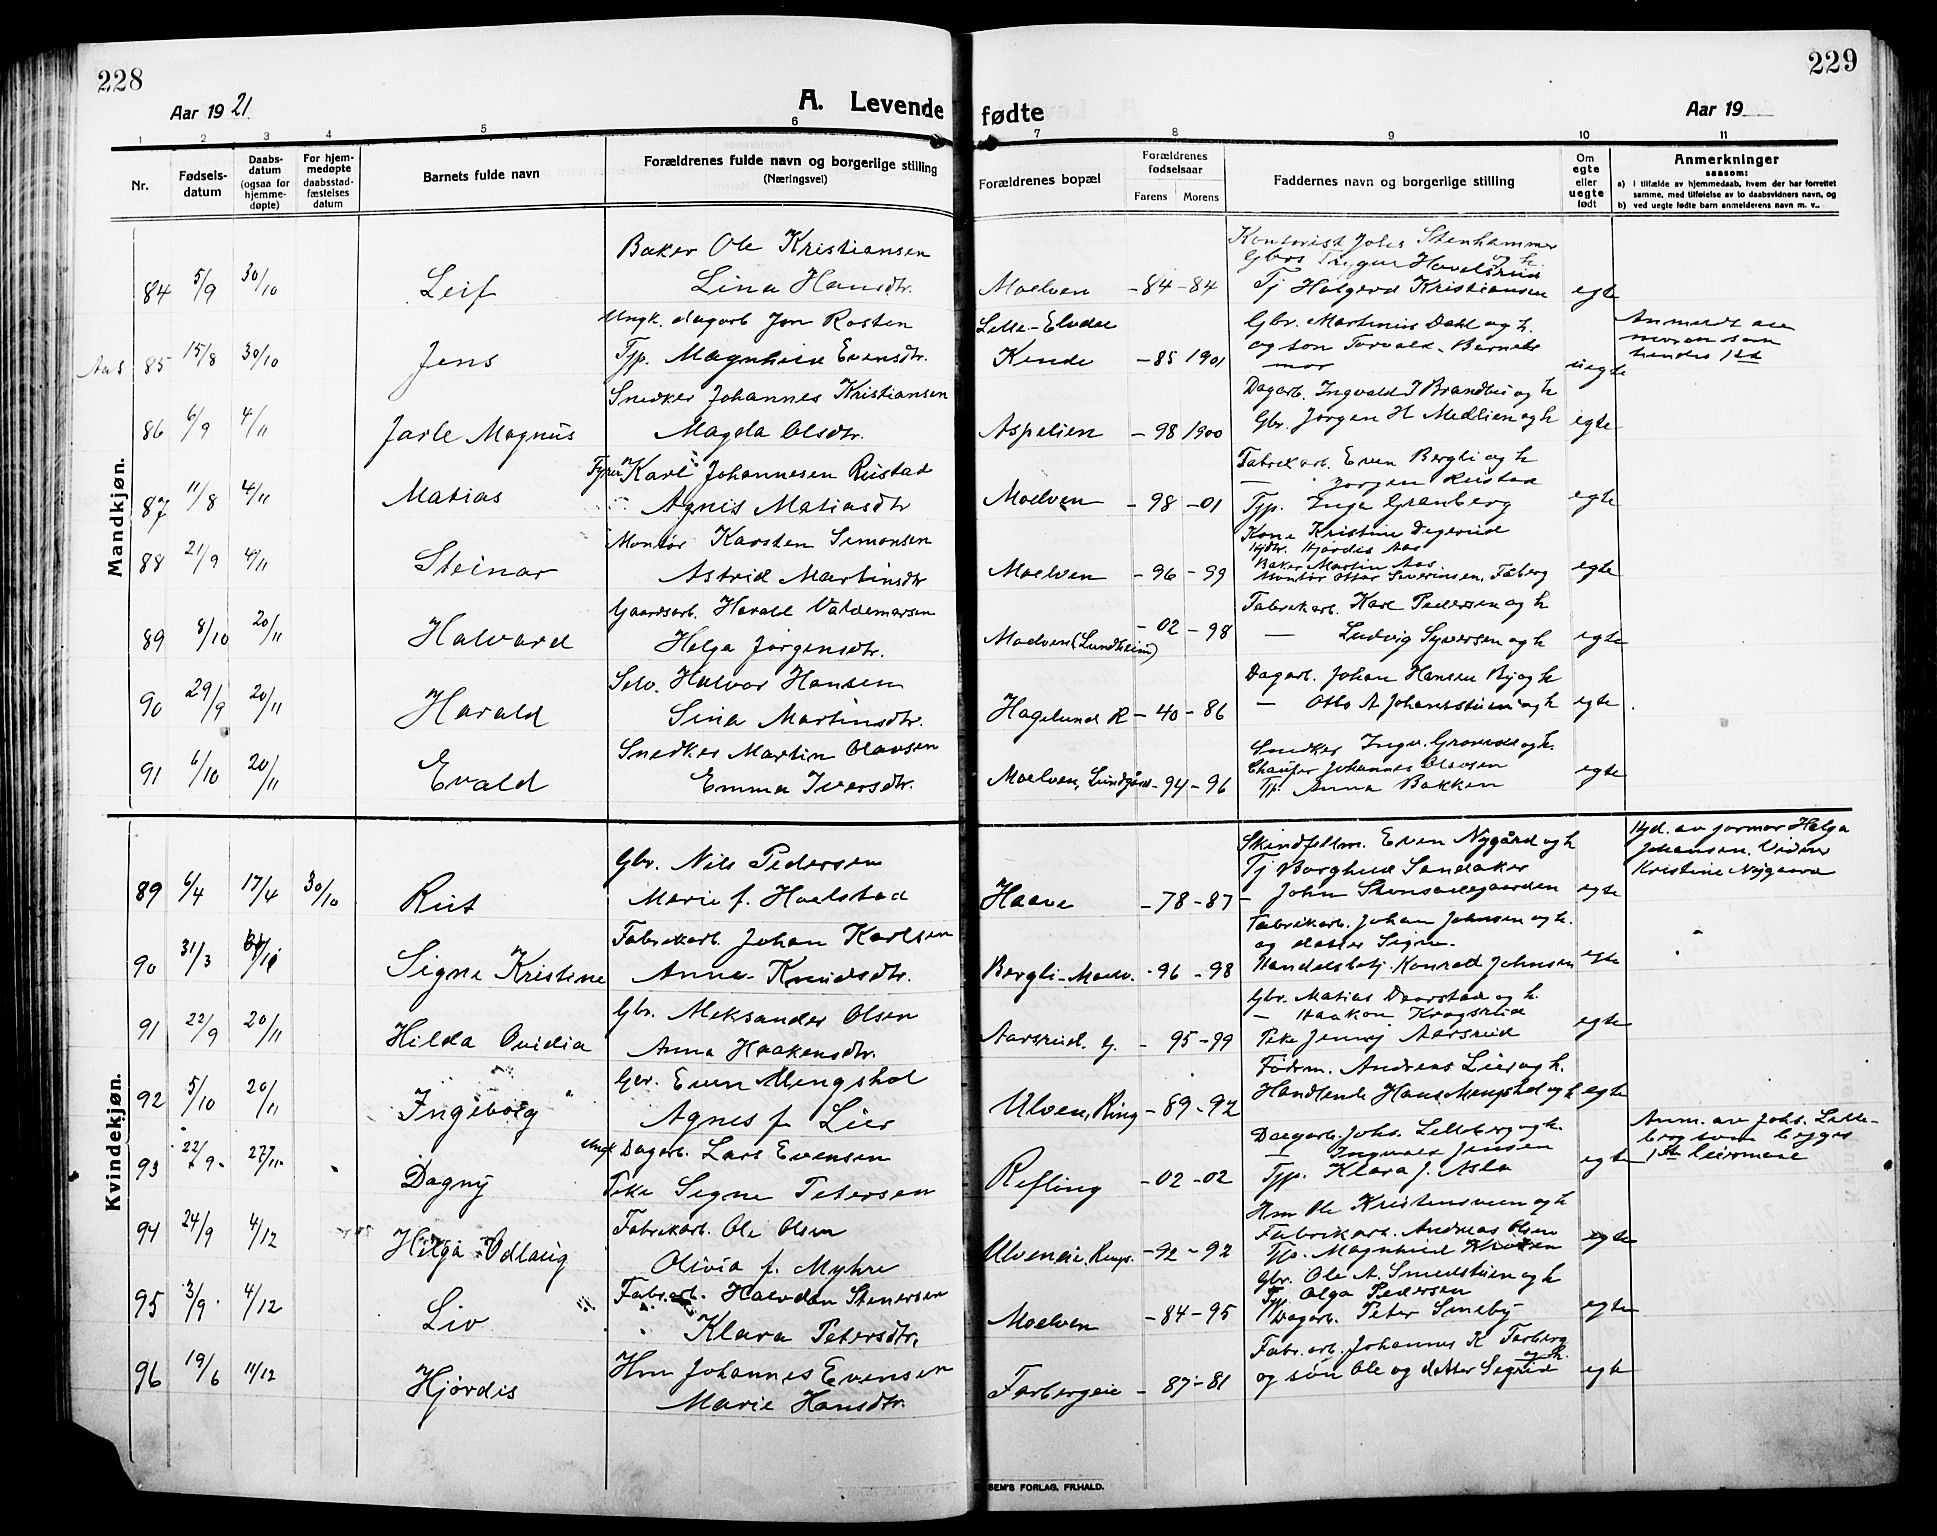 228
Aar 1921
A. Levende
1 2 3 4 5 6
Nr.
Fødsels-
datum
Daabs-
datum
(ogsaa for
hjemme-
døpte)
For hjem-
medøpte
daabsstad-
fæstelses
datum
Barnets fulde navn
Forældrenes fulde navn og borgerlige stilling
(Næringsvei)
Mandkjøn.
Baker Ole Kristiansen
84 5/9 30/10 Leif Lina Hansdtr.
Ungk. dagarb Jon Rosten
Aas 85 15/8 30/10 Jens Typ. Magnhild Evensdtr.
Snedker Johannes Kristiansen
86 6/9 4/11 Jarle Magnus Magda Olsdtr.
Karl Johannesen Rustad
87 11/8 4/11 Matias Agnis Matiasdtr
Montør Karsten Simonsen
88 21/9 4/11 Steinar Astrid Martinsdtr
Gaardsarb. Harald Valdemarsen
89 8/10 20/11 Halvard Helga Jørgensdtr.
Selv. Halvor Hansen
90 29/9 20/11 Harald Sina Martinsdtr.
Snedker Martin Olavsen
91 6/10 20/11 Evald Emma Iversdtr.
Kvindekjøn.
Gbr. Nils Pedersen
89 6/4 17/4 30/10 Rut Marie f. Hoelstad
Fabrikarb. Johan Karlsen
90 31/3 Signe Kristine Anna Knudsdtr.
Gbr. Aleksander Olsen
91 22/9 20/11 Hilda Ovidia Anna Haakensdtr.
Gbr. Even Mengshol
92 5/10 20/11 Ingeborg Agnes f. Lier
Ungk. Dagarb. Lars Evensen
93 22/9 27/11 Dagny Pike Signe Petersen
Fabrikarb. Ole Olsen
94 24/9 4/12 Helga Odlaug Olivia f. Myhre
Fabr.arb. Halvdan Stenersen
95 3/9 4/12 Liv Klara Petersdtr.
Hm Johannes Evensen
96 19/6 11/12 Hjørdis Marie Hansdtr.
229
fødte
Aar 19
7 8 9 10 11
Forældrenes bopæl
Forældrenes
fødselsaar
Farens Morens
Faddernes navn og borgerlige stilling
Om
egte
eller
uegte
født
Anmerkninger
saasom:
a) i tilfælde av hjemmedaab, hvem der har forrettet
samme, med tilføielse av to daabsvidners navn, og
b) ved uegte fødte barn anmelderens navn m. v..
Kontorist Johs Stenhammer
og h.
Gbrs Trygve Havelsrud
Moelven - 84 - 84 Tj Holgerd Kristiansen egte
Lille-Elvdal Gbr. Martinus Dahl og h. Anmeldt av
Kende - 85 1901 og søn Torvald. Barnets moren som
mor uegte hendes 1ste
Dagarb. Ingvald J Brandlie og h
Aspelien - 98 1900 Gbr. Jørgen H Medlien og h egte
Fabrikarb. Even Bergli og h
— Jørgen Rustad
Moelven - 98 - 01 Typ. Inga Granberg egte
Kone Kristine Degerud
Hjdtr. Hjørdis Aas
Baker Martin Aas.
Moelven - 96 - 99 Montør Ottar Severinsen, Faberg egte
Fabrikarb. Karl Pedersen og h
Moelven (Lundheim) - 02 - 98 — Ludvig Syversen og h egte
Dagarb. Johan Hansen By og h
Hagelund R - 40 - 86 — Otto A Johanstuen og h egte
Snedker Ingv. og h.
Chaufør Johannes Olavsen
Moelven, Lundgård - 94 - 96 Tp. Anna Bakken egte
Skindfellm. Even Nygård og h Hjd. av jormor Helga
Tj Borghild Sandaker Johansen. Vidner
Haave - 78 - 87 — John egte Kristine Nygaard
Fabrikarb. Johan Johnsen og h.
og datter Signe.
Bergli-Moelv. - 96 - 98 Handelsbetj. Konrad Johnsen egte
Gbr. Matias Dørstad og h.
— Haakon Krogsrud
Aarsrud. g. - 95 - 99 Pike Jenny Aarsrud egte
Fodrm. Andreas Lier og h.
Ulven, Ring - 89 - 92 Handlende Hans Mengshol og h egte
Dagarb. Johs. Lilleberg og h. Anm. av Johs. Lille-
— Ingvald Jensen berg som begges
Refling - 02 - 02 Typ. Klara J. Asla egte 1ste leiermaal
Hm Ole Kristensveen og h
Fabrikarb. Andreas Olsen
Ulveneie, Rings. - 92 - 92 Typ. Magnhild Kroken egte
Gbr. Ole A. Smedstuen og h
Tj Olga Pedersen
Moelven - 84 - 95 Dagarb. Peter Smeby egte
Fabr.arb. Johannes K Farberg
og h.
Farbergeie - 87 - 81 og søn Ole og datter Sigrid egte
SEM'S FORLAG, FR.HALD.